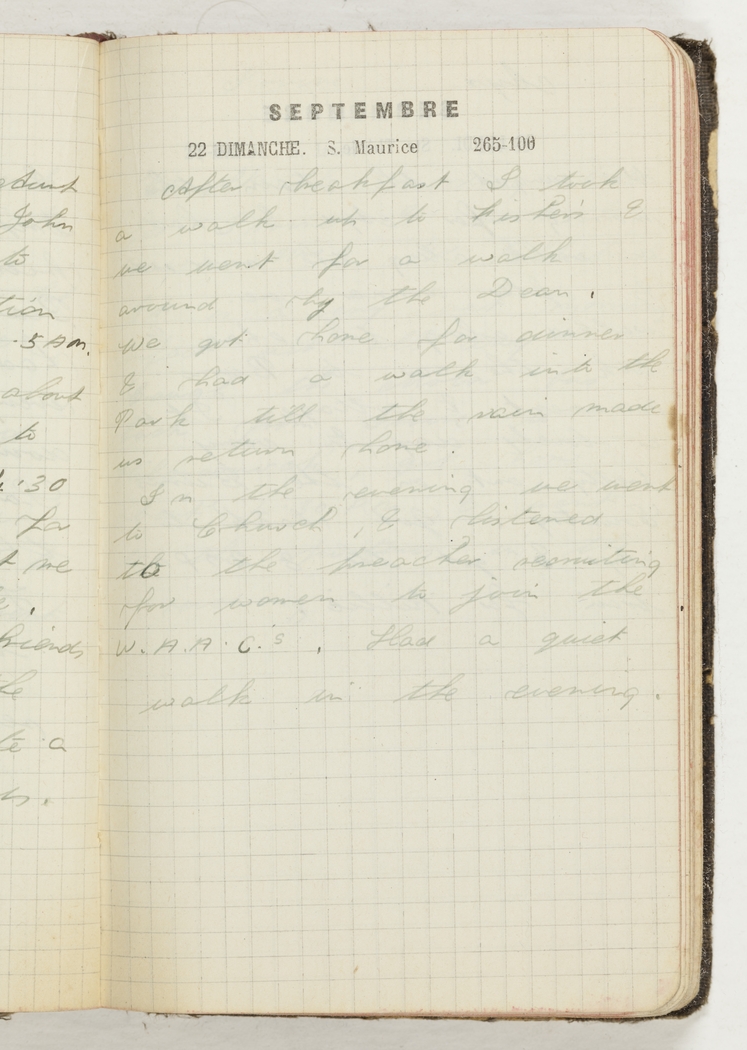 SEPTEMBRE
22 DIMANCHE. S. Maurice 265-100
After breakfast I took
a walk up to Fisher's &
we went for a walk
around by the Dean.
We got home for dinner
& had a walk into the
Park till the rain made
us return home.
In the evening we went
to Church, & listened
to the preacher recruiting
for women to join the
W.A.A.C.'s. Had a quiet
walk in the evening.
John
to
-5 Am.
about
to
30
for
we
friends
a